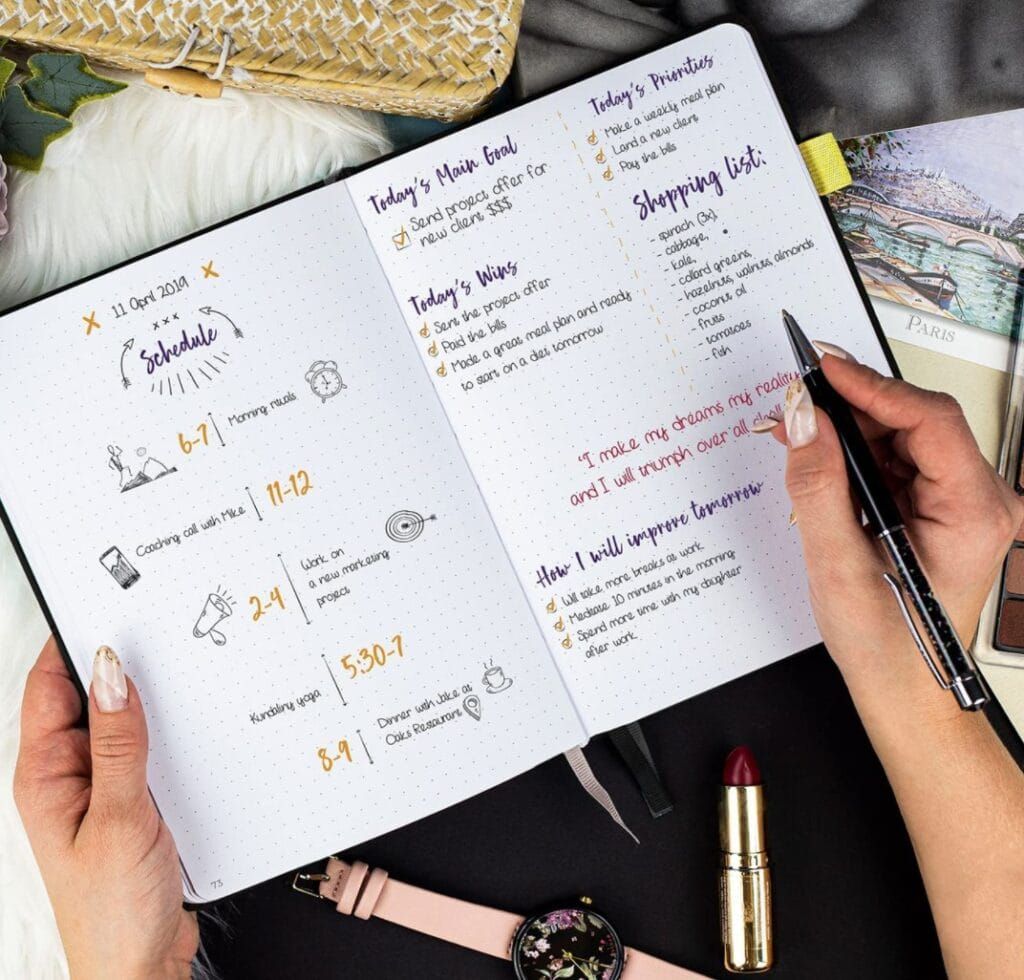 11 April 2019
x x x
Schedule
6-7
Morning rituals
11-12
Coaching call with Mike
2-4
Work on
a new marketing
project
5:30-7
Kundaliny yoga
8-9
Dinner with Jake at
Oaks Restaurant
73
Today's Main Goal
Send project offer for
new client $$$
Today's Wins
Sent the project offer
Paid the bills
Made a great meal plan and ready
to start on a diet tomorrow
Today's Priorities
Make a weekly meal plan
Land a new client
Pay the bills
Shopping list:
- spinach (3x),
- cabbage,
- kale,
- collard greens,
- hazelnuts, walnuts, almonds
- coconut oil
- fruits
- tomatoes
- fish
"I make my dreams my reality
and I will triumph over all
How I will improve tomorrow
Will take more breaks at work
Meditate 10 minutes in the morning
Spend more time with my daughter
after work
PARIS